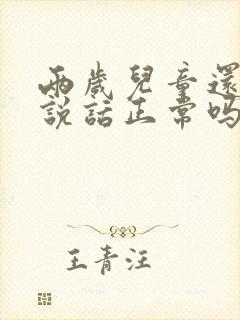 兩歲兒童還
說話正常吗
王青汪